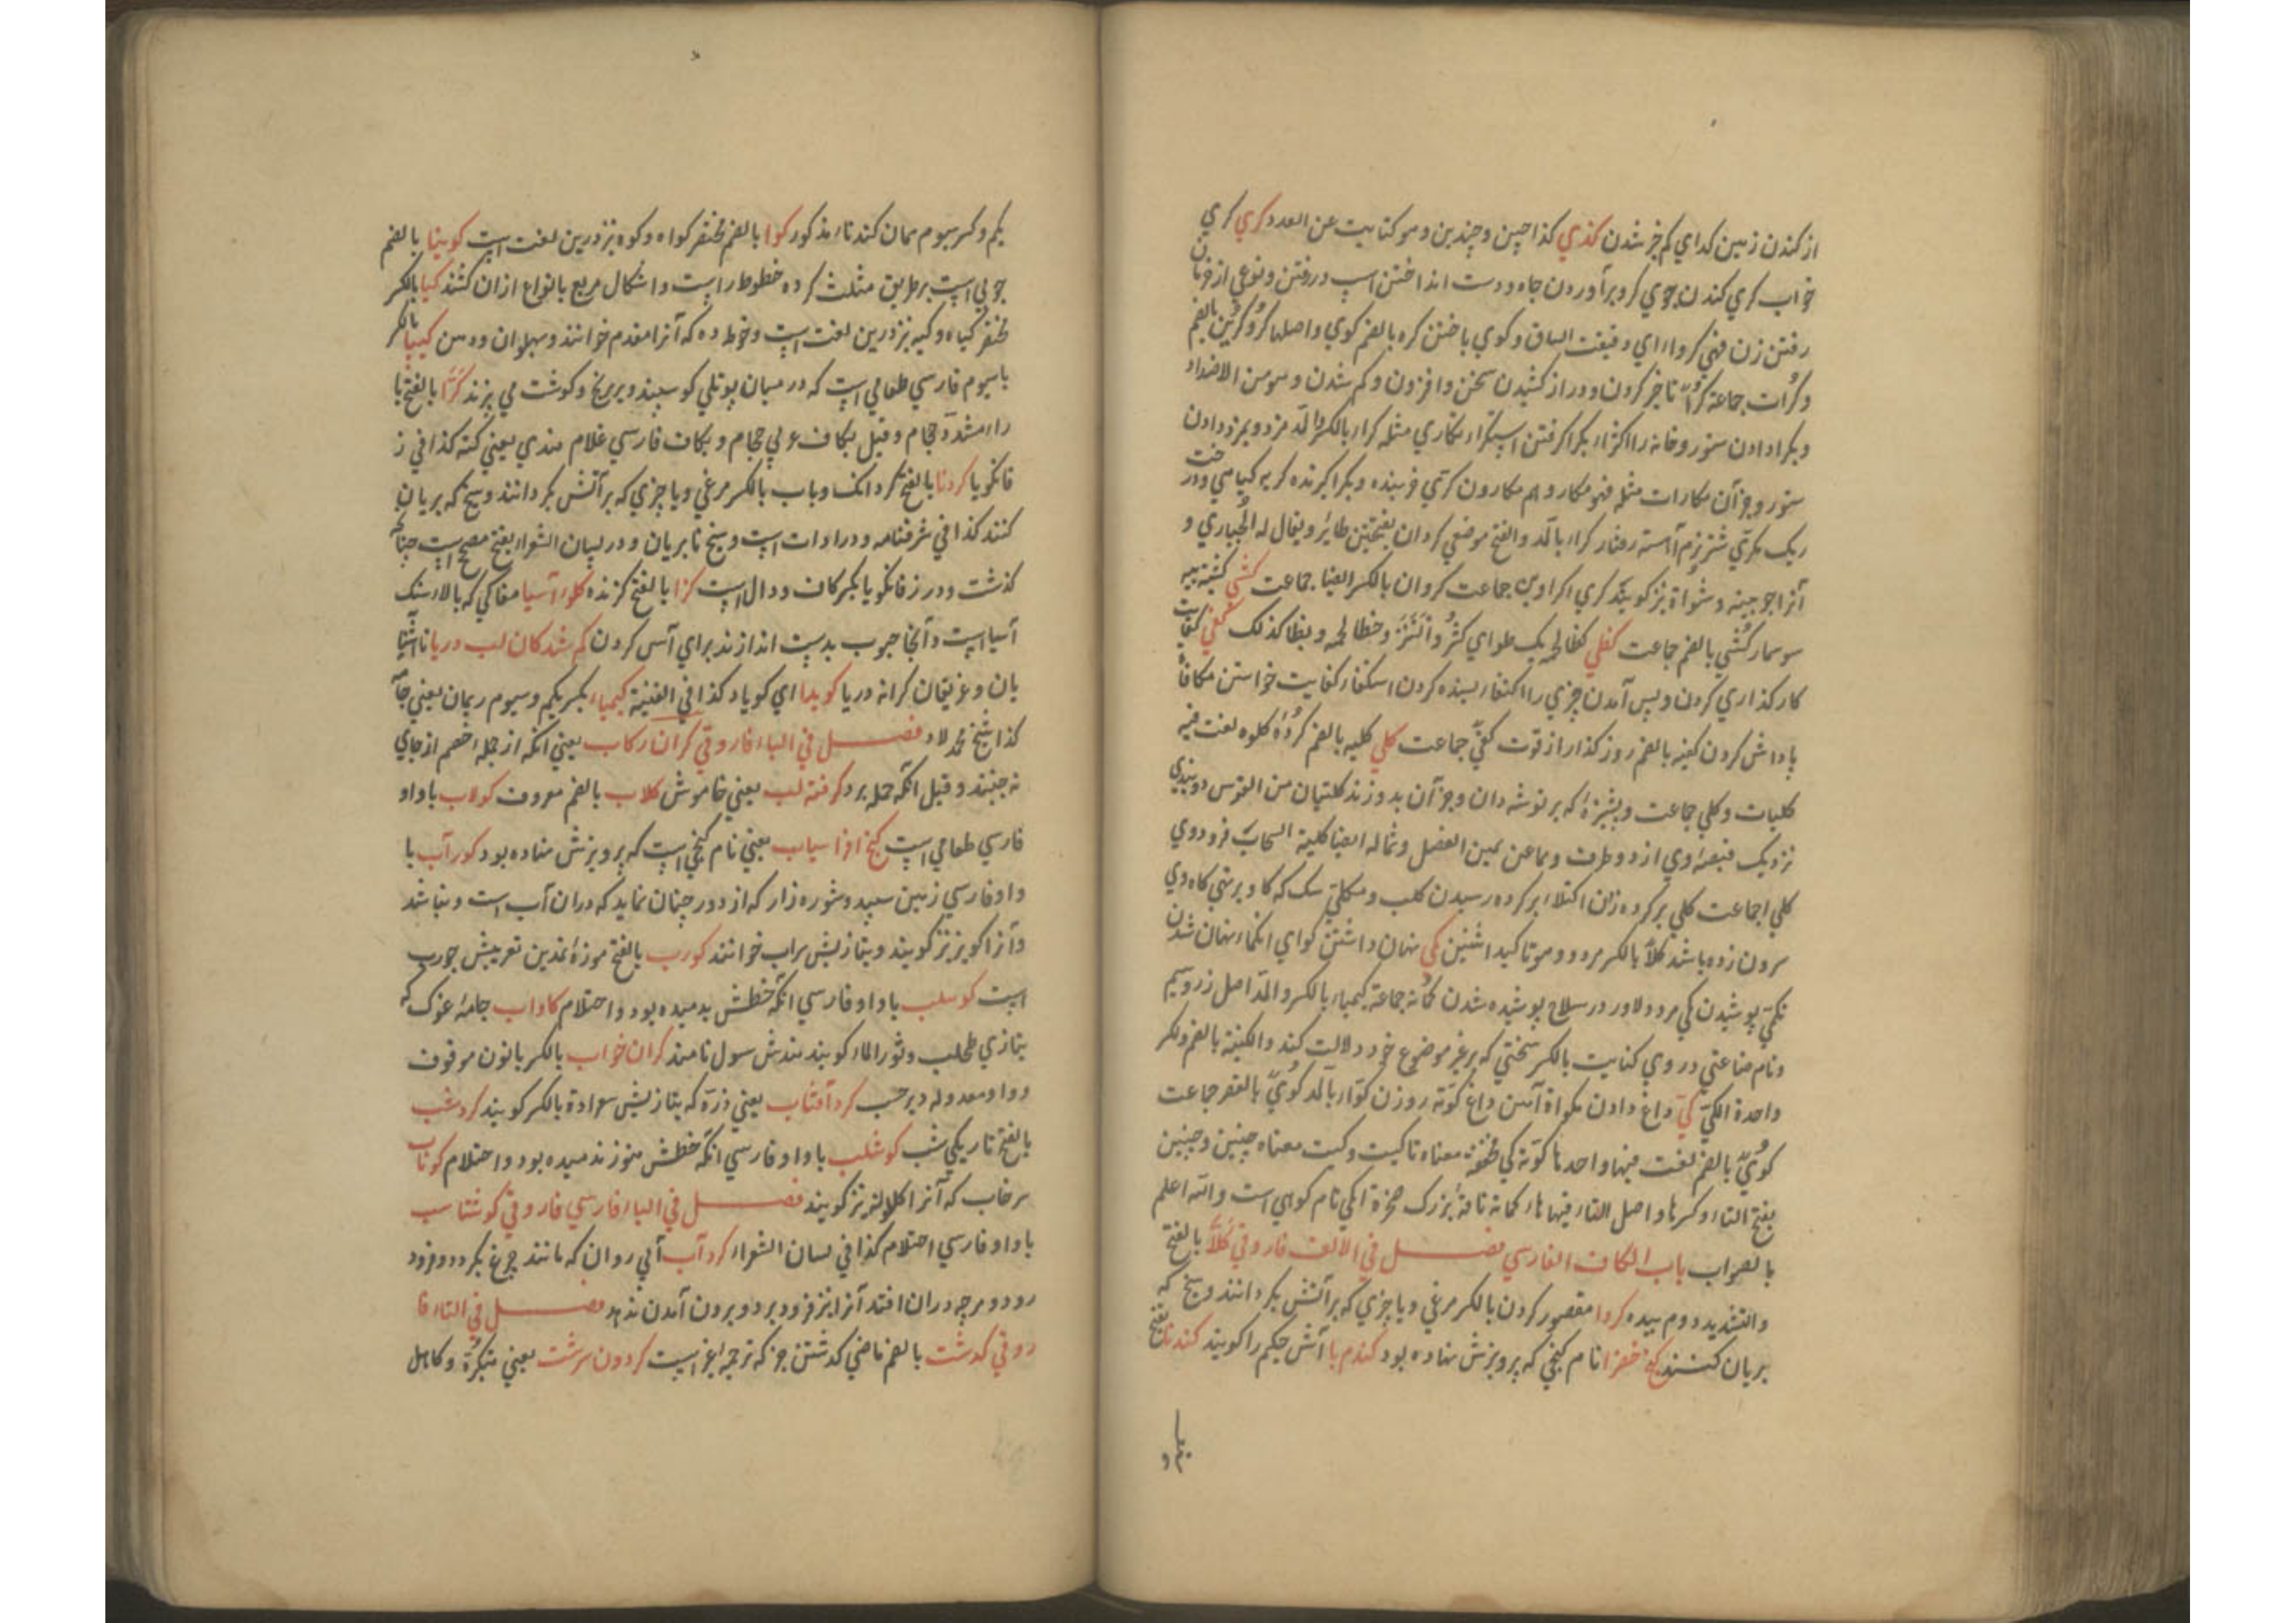 از کندن زمین کدای کم خیر شدن کذی کذا چنین و چندین و هو کنایت عن العدد کری کری
خواب کری کندن جوی کرو برآوردن چاه و دست انداختن اسپ در رفتن و نوعی از
رفتن زن فهی کرواء ای دقیقت الساق و کوی باختن کره بالضم کوی واصلها کرو کرین بالضم
و کرات جماعة تاخیر کردن و دراز کشیدن سخن و افزون و کم شدن و هو من الاضداد
و بکرا دادن ستور و خانه را اکتراء بکرا کرفتن استکراء تکاری مثله کراء بالکسر والمد مزد و بمزد دادن
ستور و جز آن مکارات مثله فهو مکار و هم مکارون کری فرسنده و بکرا گیرنده
ریک مکری شتر نرم آهسته رفتار کراء بالمد والفتح موضعی کروان بفتحتین طایر و یقال له الحباری و
آنرا چوبینه نیز کویند کری اکراوین جماعت کروان بالکسر ایضا جماعت کشی کشیه پیه
سوسمار کشی بالضم جماعت کظی کظا لحمه یک طوای کثر و خظا لحمه و بظا کذلک کفی کفایت
کار کذاری کردن و بس آمدن چیزی را اکتفاء بسنده کردن استکفاء کفایت خواستن مکافاة
پاداش کردن کفیه بالضم روز کذار از قوت کفی جماعت کلی کلیه بالضم کرده کلوه لغت فیه
کلیات و کلی جماعت که بر توشه دان و جز آن بدوزند کلیتان من القوس دو
نزدیک قبضه وی از دو طرف و هما عن یمین النصل و شماله ایضا کلیة السحاب فرودوی
کلی جماعت کلی بر کرده زدن اکتلاء بر کرده رسیدن کلب و مکلی سک که کاو
سرون زده باشد کلا بالکسر مر دو را و هو تاکید اثنین کمی نهان داشتن کوای انکماء نهان شدن
تکمی پوشیدن کمی مرد دلاور در سلاح پوشیده شدن کماة جماعة کیمیاء بالکسر والمد اصل زر و سیم
و نام صناعتی در وی کنایت بالکسر سخنی که بر غیر موضوع خود دلالت کند والکنیة بالضم والکسر
واحدة الکنی کی داغ دادن مکواة آهن داغ کوة روزن کواء بالمد کوی بالقصر جماعت
کوی بالضم لغت فیها واحدها کوة کی مخففة معناه تا کیت و کیت معناه چنین و چنین
بفتح التاء و کسرها و اصل التاء فیها هاء کماة ناقة بزرک نام کوهی است والله اعلم
بالصواب باب الکاف الفارسی فصل فی الالف فاروقی کلا بالفتح
والتشدید دوم بیده کردا مقصور کردن بالکسر مرغی و یا چیزی که بر آتش بکردانند و سیخ که
بریان کنند کنج خضرا نام کنجی که پرویزش نهاده بود کندم با آش حکیم را کویند کندنا بفتح
یکم و
یکم و کسر سیوم همان کندناء مذکور کوا بالضم مختصر کواه و کوه نیز درین لغت است کوبینا بالضم
چوبی است بر طریق مثلث کرده خطوط راست و اشکال مربع بانواع ازان کشند کیا بالکسر
مختصر کیاه و کیه نیز درین لغت است و خوط ده که آنرا مقدم خوانند و پهلوان ودهن کیپا بالکسر
با سیوم فارسی طعامی است که در میان پوتلی کوسپند و بر برنج و کوشت می پزند کرا بالفتح با
راء مشدد حجام و قیل بکاف عربی حجام و بکاف فارسی غلام هندی یعنی کته کذا فی ز
فانکویا کردنا بالفتح کردانک و باب بالکسر مرغی و یا چیزی که بر آتش بکردانند و سیخ که بریان
کنند کذا فی شرفنامه و در ادات است و سیخ تا بریان و در لسان الشعراء بفتح مصحح است چنانچه
کذشت و در ز فانکویا بکسر کاف و دال است کزا بالفتح کزنده کلوء آسیا مغاکی که بالاء سنک
آسیا است و آنجا حبوب بدست اندازند برای آس کردن کم شدکان لب دریا ناآشنا
یان و غریقان کرانه دریا کویدا ای کویاد کذا فی القنیة کیمیاء بکسر یکم و سیوم ریمان یعنی
کذا شیخ محمد لاد فصل فی الباء فاروقی کران رکاب یعنی انکه از حمله خصم از جای
نه جنبند و قیل انکه حمله برد کرفته لب یعنی خاموش کلاب بالضم معروف کولاب با واو
فارسی طعامی است کنج افراسیاب یعنی نام کنجی است که پرویزش نهاده بود کور آب با
واو فارسی زمین سپید و شوره زار که از دور چنان نماید که دران آب است و نباشد
و آنرا کویر نیز کویند و بتازیش سراب خوانند کورب بالفتح موزه نمدین تعریبش جورب
است کوسلب با واو فارسی انکه خطش بدمیده بود و احتلام کاو اب جامه غوک که
بتازی طحلب و ثور الماء کویند هندش سول نامند کران خواب بالکسر با نون موقوف
و واو معدوله دیر خسب کرد آفتاب یعنی ذره که بتازیش سوادة بالکسر کویند کرد شب
بالفتح تاریکی شب کوشلب با واو فارسی انکه خطش هنوز ندمیده بود و احتلام کوناب
سرخاب که آنرا کلکونه نیز کویند فصل فی الباء فارسی فاروقی کوشتاسپ
با واو فارسی احتلام کذا فی لسان الشعراء کرد آب آبی روان که مانند چرخ بکردد و فرود
رود و هرچه دران افتد آنرا نیز فرود برد و برون آمدن ندهد فصل فی التاء فا
روقی کدشت بالضم ماضی کدشتن جز که ترجمه غیر است کردون سرشت یعنی متکبر و کاهل